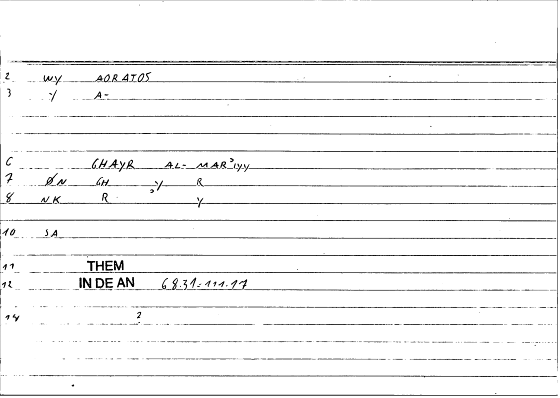 2 WY AORATOS
3 Y A-
6 GHAYR AL- MAR'IYY
7 ØN GH 'Y R
8 NK R Y
10 SA
11 THEM
12 IN DE AN 68.31:111.17
14 2